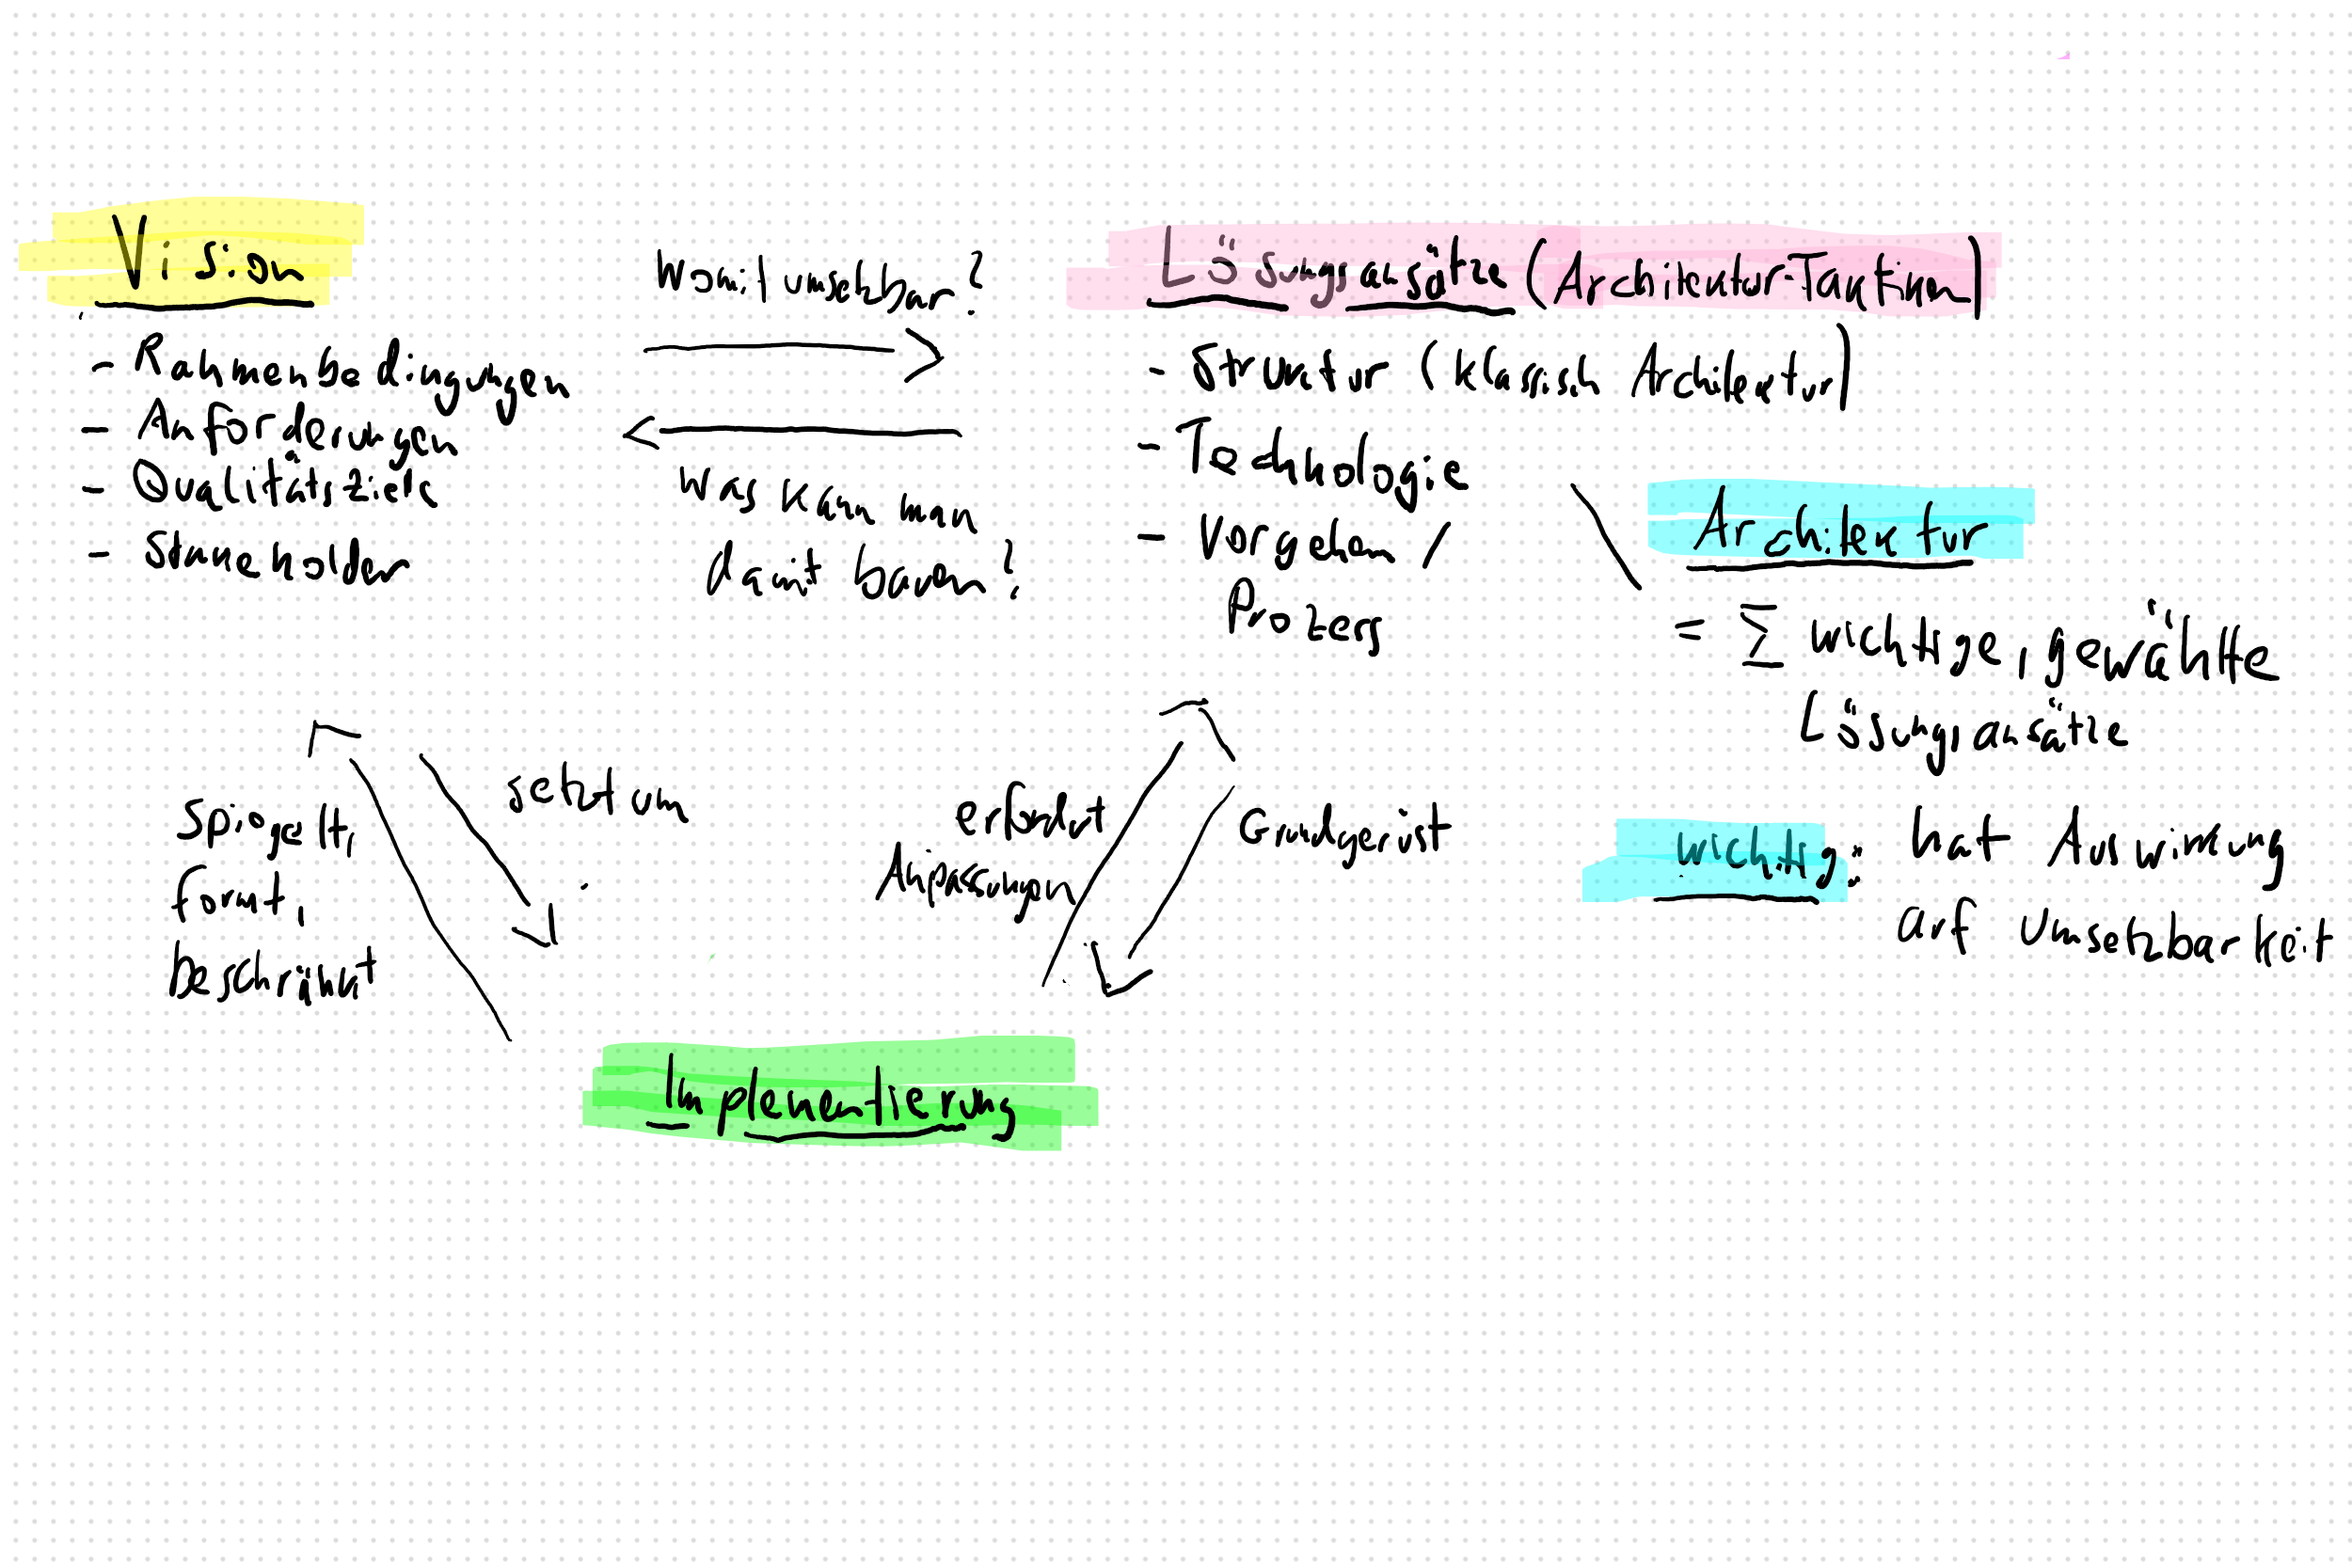 Vision
- Rahmenbedingungen
- Anforderungen
- Qualitätsziele
- Stakeholder
Womit umsetzbar?
was kann man
damit bauen?
Lösungsansätze (Architektur-Taktiken)
- Struktur (klassisch Architektur)
- Technologie
- Vorgehen /
Prozess
Architektur
= Σ wichtige, gewählte
Lösungsansätze
wichtig: hat Auswirkung
auf Umsetzbarkeit
spiegelt,
formt,
beschränkt
setzt um
erfordert
Anpassungen
Grundgerüst
Implementierung